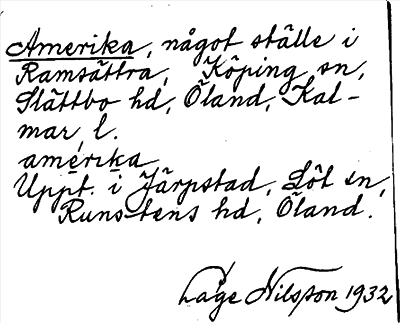 Amerika, något ställe i
Ramsättra, Köping sn,
Slättbo hd, Öland, Kal-
mar l.
amérika
Uppt. i Järpstad, Löt sn,
Runstens hd, Öland.
Låge Nilsson 1932